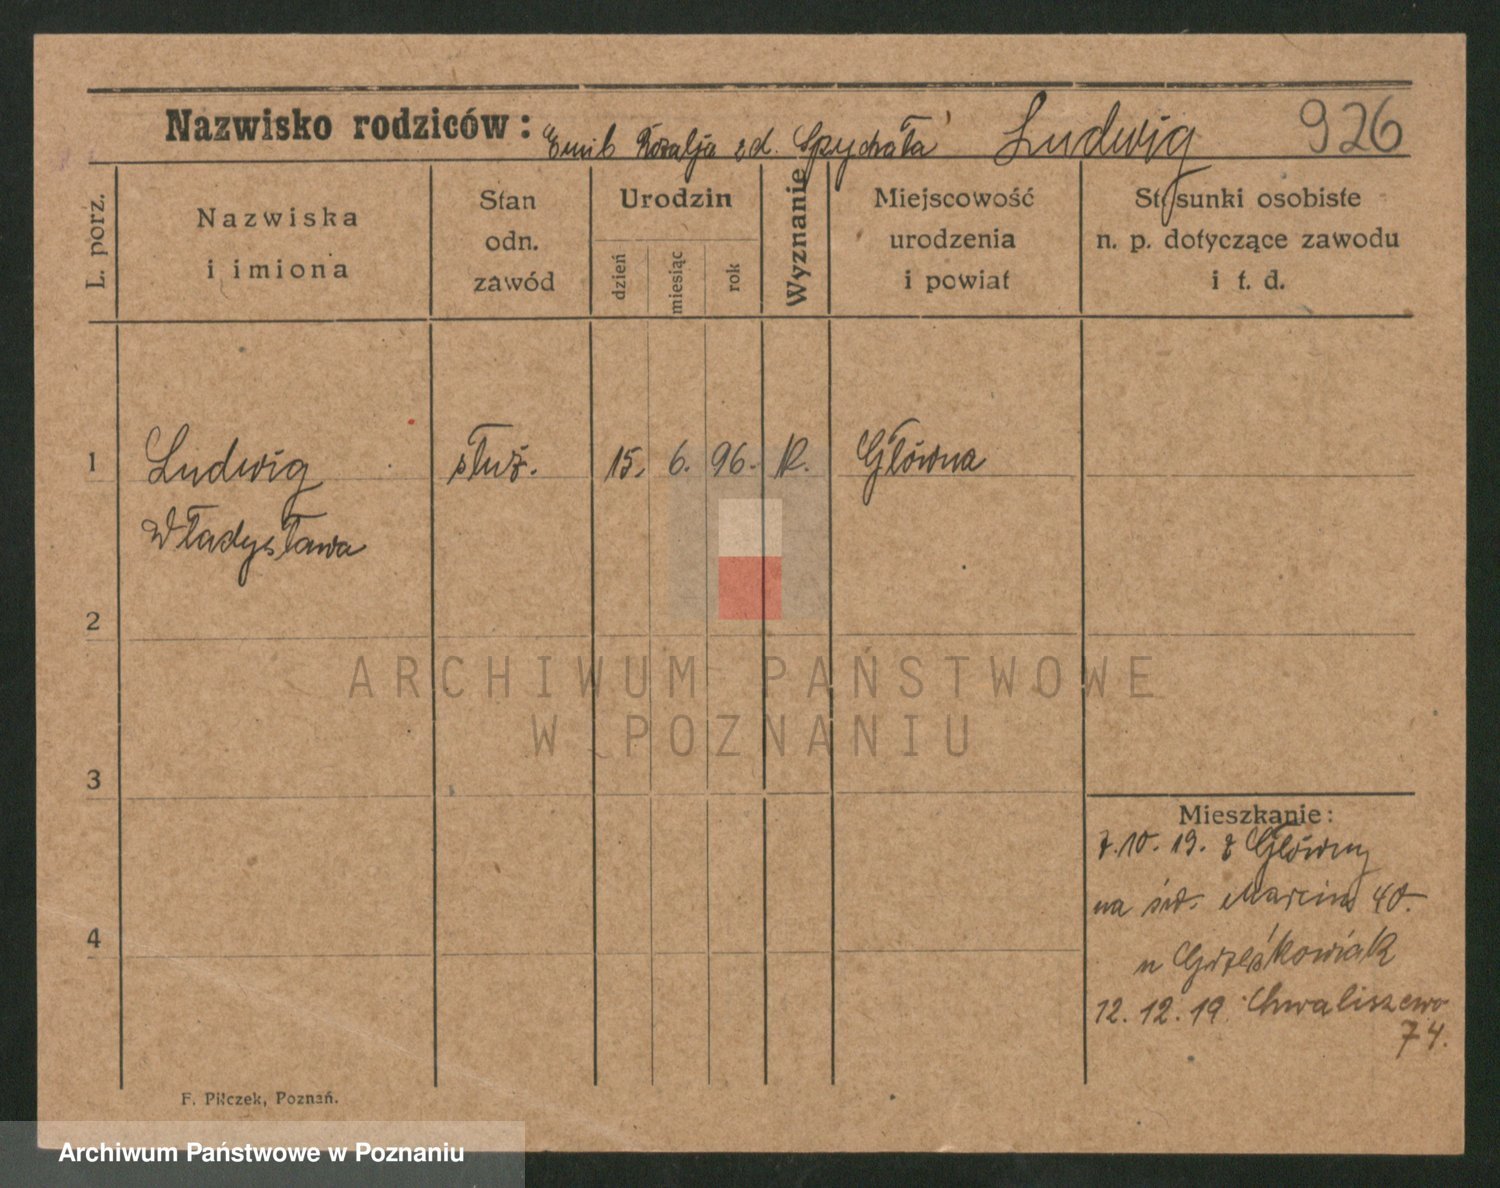 Nazwisko rodziców: Emil Rozalja zd. Spychała Ludwig 926
L. porz.
Nazwiska i imiona
Stan odn. zawód
Urodzin
dzień
miesiąc
rok
Wyznanie
Miejscowość urodzenia i powiat
Stosunki osobiste n. p. dotyczące zawodu i t. d.
1 Ludwig służ. 15. 6. 96. R. Główna
Władysława
2
ARCHIWUM PAŃSTWOWE
W POZNANIU
3
Mieszkanie:
7.10.19. z Główny
na św. Marcin 40.
4
u Grześkowiak
12.12.19. Chwaliszewo
74.
F. Pilczek, Poznań.
Archiwum Państwowe w Poznaniu